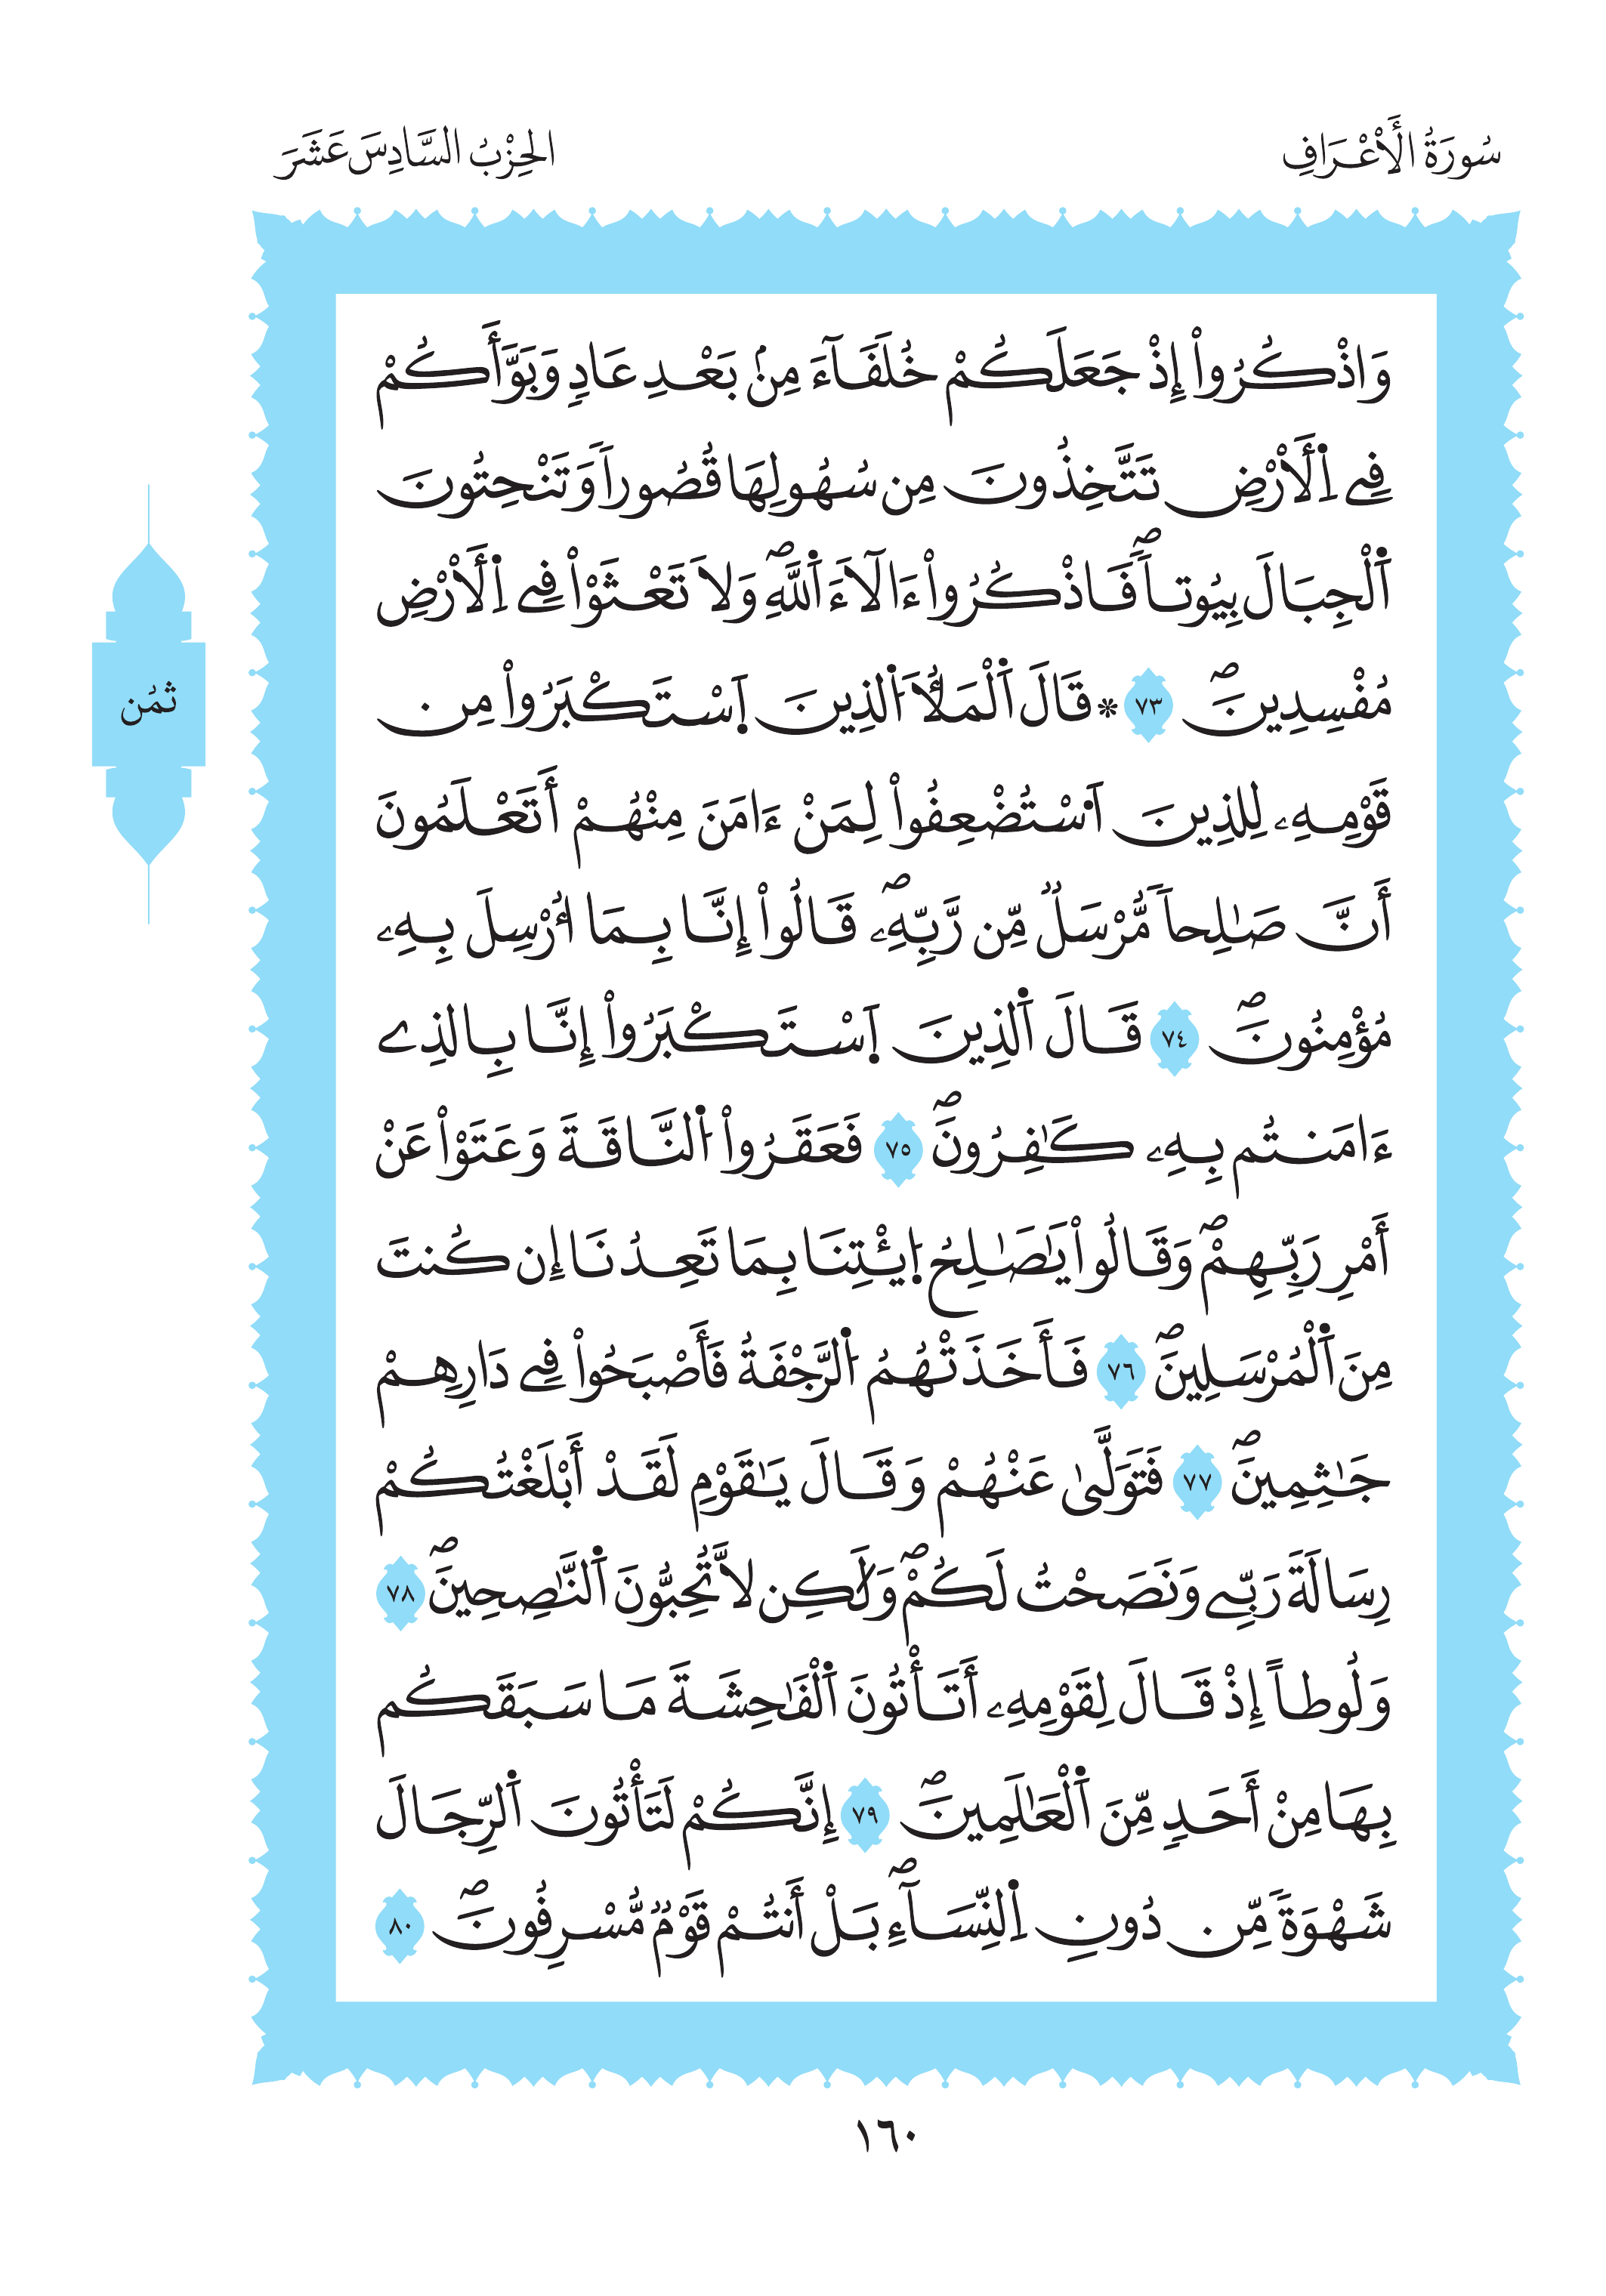 سُورَةُ الْأَعْرَافِ
الحِزْبُ السَّادِسَ عَشَرَ
وَاذْكُرُواْ إِذْ جَعَلَكُمْ خُلَفَآءَ مِنۢ بَعْدِ عَادٖ وَبَوَّأَكُمْ
فِے اِ۬لَارْضِ تَتَّخِذُونَ مِن سُهُولِهَا قُصُوراٗ وَتَنْحِتُونَ
اَ۬لْجِبَالَ بِيُوتاٗۖ فَاذْكُرُواْ ءَالَآءَ اَ۬للَّهِۖ وَلَا تَعْثَوْاْ فِے اِ۬لَارْضِ
مُفْسِدِينَۖ ٧٣ ۞ قَالَ اَ۬لْمَلَأُ اَ۬لذِينَ اَ۪سْتَكْبَرُواْ مِن
قَوْمِهِۦ لِلذِينَ اَ۟سْتُضْعِفُواْ لِمَنْ ءَامَنَ مِنْهُمْ أَتَعْلَمُونَ
أَنَّ صَٰلِحاٗ مُّرْسَلٞ مِّن رَّبِّهِۦۖ قَالُواْ إِنَّا بِمَا أُرْسِلَ بِهِۦ
مُؤْمِنُونَۖ ٧٤ قَالَ اَ۬لذِينَ اَ۪سْتَكْبَرُواْ إِنَّا بِالذِے
ءَامَنتُم بِهِۦ كَٰفِرُونَۖ ٧٥ فَعَقَرُواْ اُ۬لنَّاقَةَ وَعَتَوْاْ عَنْ
أَمْرِ رَبِّهِمْۖ وَقَالُواْ يَٰصَٰلِحُ اُ۪يئْتِنَا بِمَا تَعِدُنَا إِن كُنتَ
مِنَ اَ۬لْمُرْسَلِينَۖ ٧٦ فَأَخَذَتْهُمُ اُ۬لرَّجْفَةُ فَأَصْبَحُواْ فِے دَارِهِمْ
جَٰثِمِينَۖ ٧٧ فَتَوَلَّىٰ عَنْهُمْ وَقَالَ يَٰقَوْمِ لَقَدْ أَبْلَغْتُكُمْ
رِسَالَةَ رَبِّے وَنَصَحْتُ لَكُمْۖ وَلَٰكِن لَّا تُحِبُّونَ اَ۬لنَّٰصِحِينَۖ ٧٨
وَلُوطاً إِذْ قَالَ لِقَوْمِهِۦ أَتَأْتُونَ اَ۬لْفَٰحِشَةَ مَا سَبَقَكُم
بِهَا مِنْ أَحَدٖ مِّنَ اَ۬لْعَٰلَمِينَۖ ٧٩ إِنَّكُمْ لَتَأْتُونَ اَ۬لرِّجَالَ
شَهْوَةٗ مِّن دُونِ اِ۬لنِّسَآءِۖ بَلْ أَنتُمْ قَوْمٞ مُّسْرِفُونَۖ ٨٠
ثمُن
١٦٠